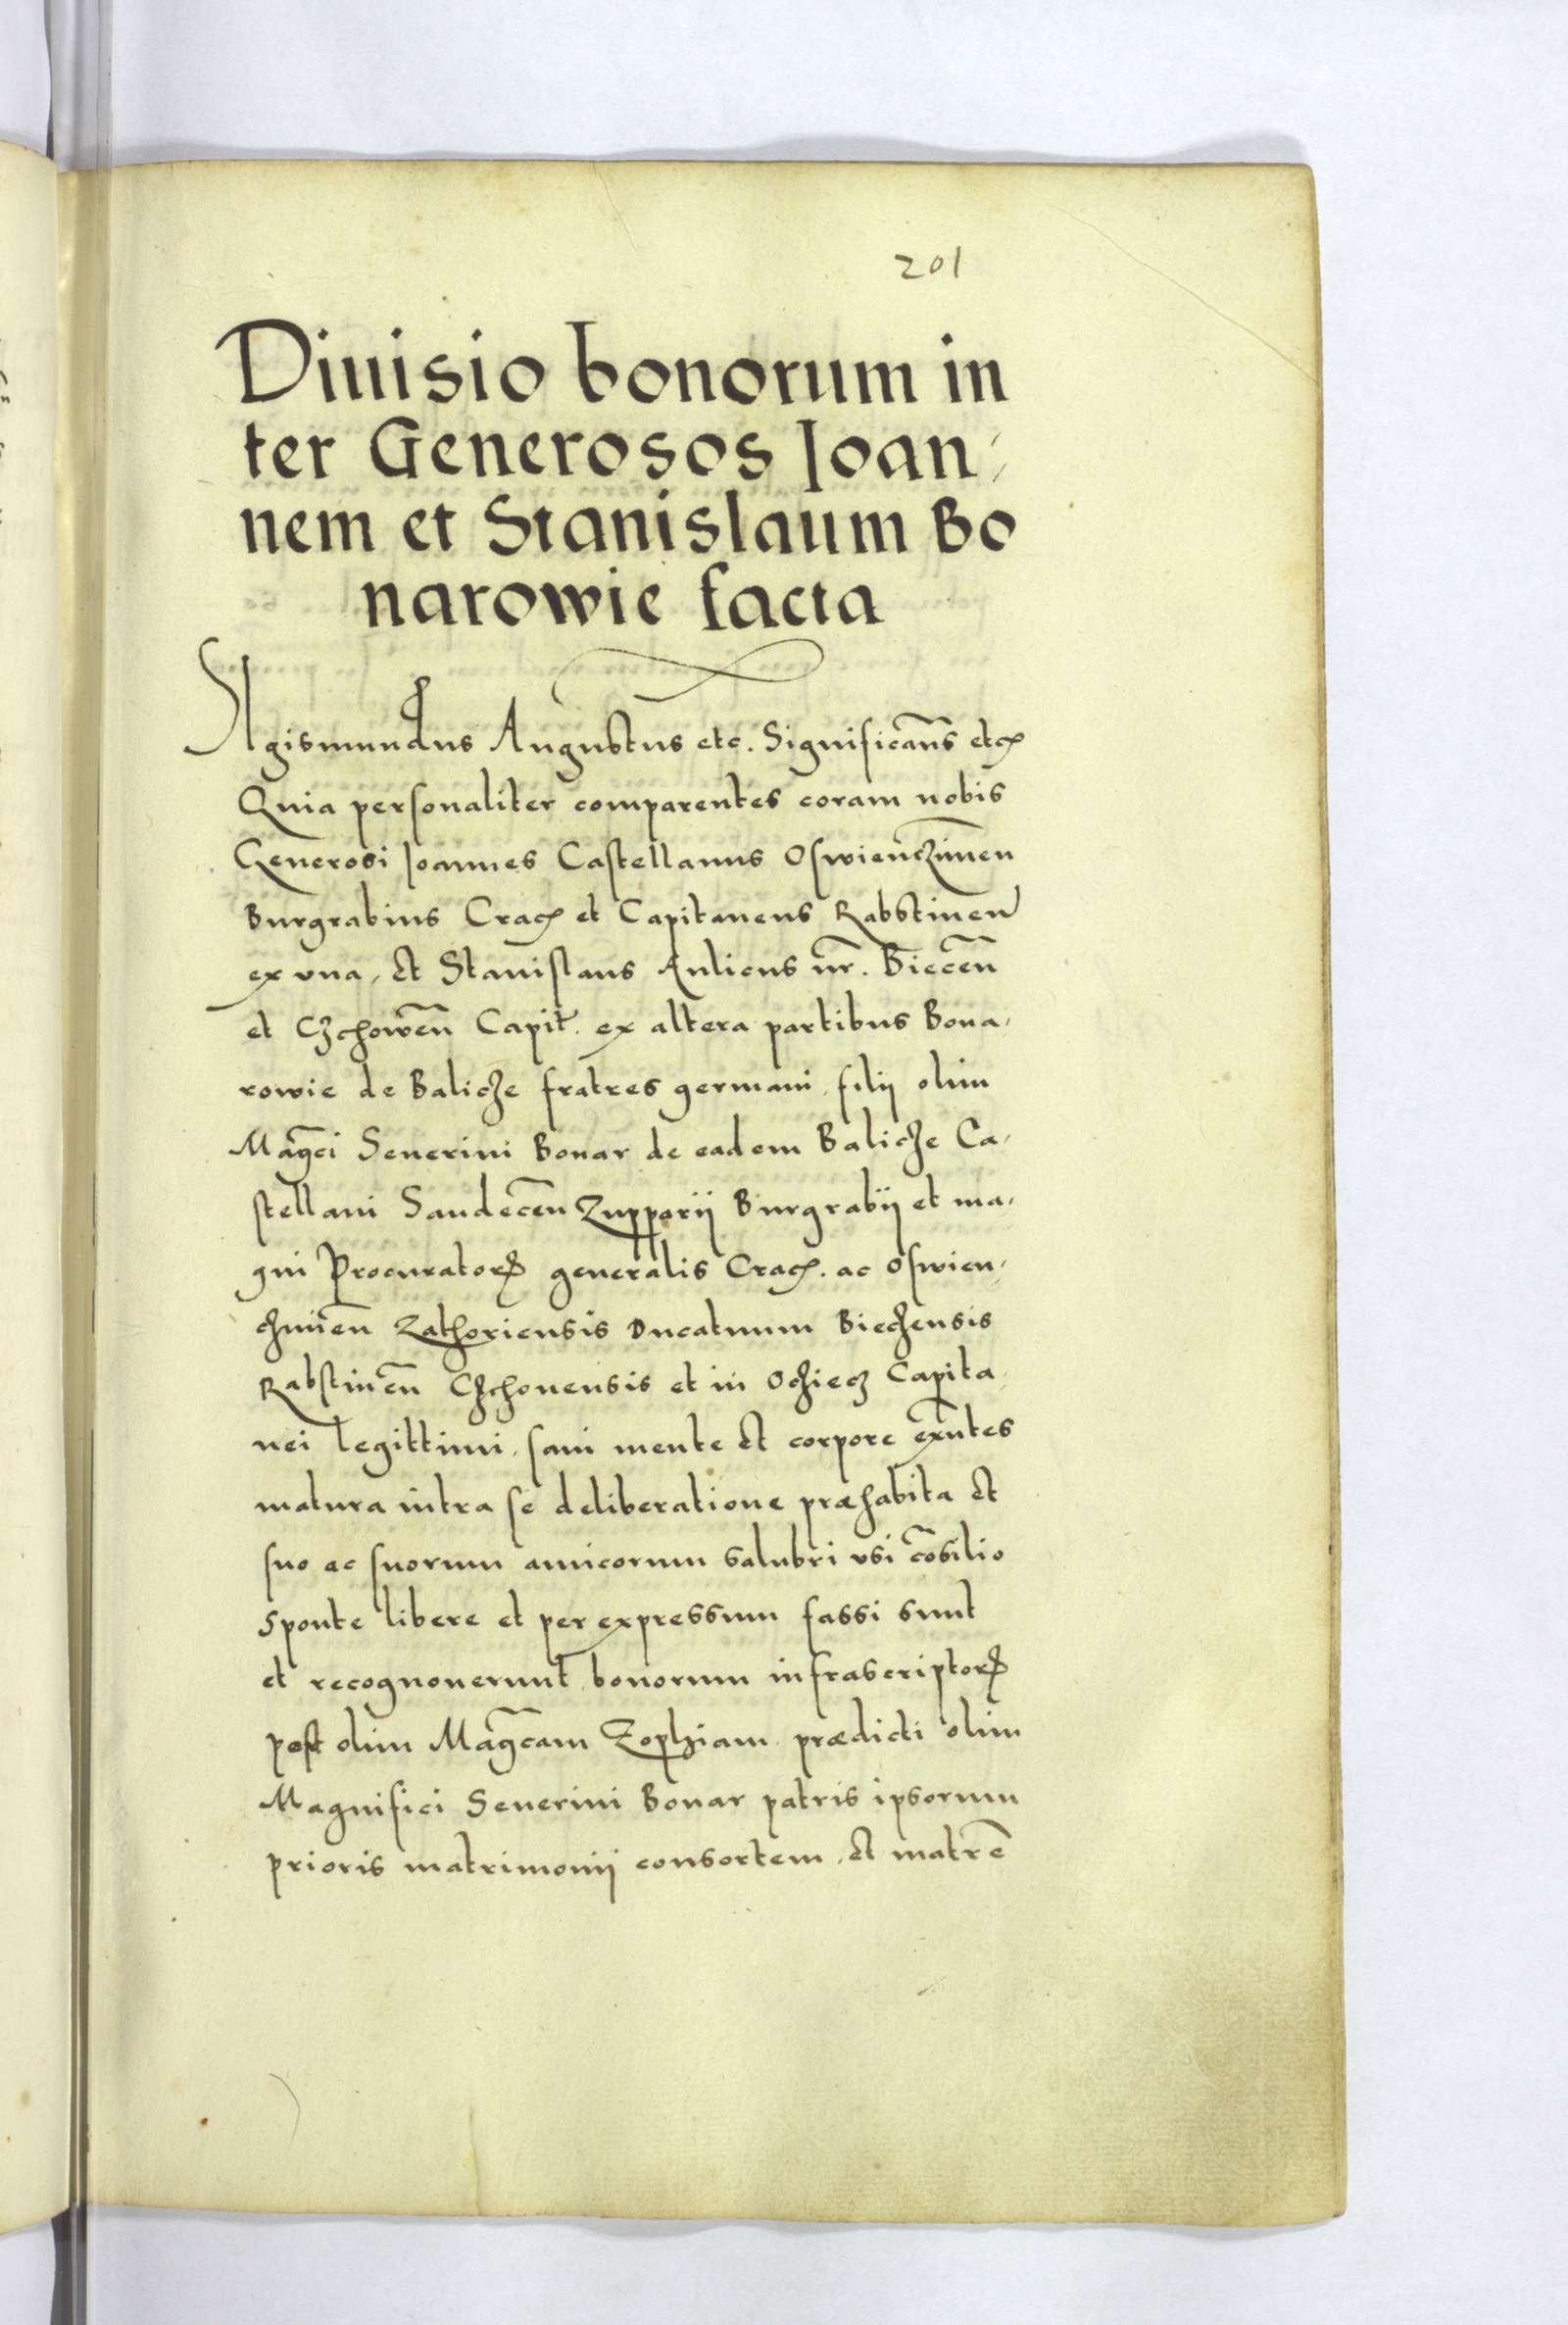 201
Diuisio bonorum in
ter Generosos Ioan-
nem et Stanislaum Bo
narowie facta
Sigismundus Augustus etc. Significam̄s etcꝭ
Quia personaliter comparentes coram nobis
Generosi Ioannes Castellanus Oswienczimen̄
Burgrabius Cracꝭ et Capitaneus Rabstinen̄
ex vna, et Stanislaus Aulicus nr̄. Biecen̄
et Czchowen̄ Capit̄. ex altera partibus Bona-
rowie de Balicze fratres germani, filij olim
Magc̄i Seuerini Bonar de eadem Balicze Ca-
stellani Sandecen̄ Zupparij Burgrabij et ma-
gni Procuratorꝭ generalis Cracꝭ. ac Oswien-
czimen̄ Zathoriensis Ducatuum Bieczensis
Rabstinen̄ Czchouensis et in Ocziecz Capita-
nei legittimi, sani mente et corpore exn̄tes
matura intra se deliberatione præhabita et
suo ac suorum amicorum salubri vsi cōsilio
sponte libere et per expressum fassi sunt
et recognouerunt bonorum infrascriptorꝝ
post olim Magc̄am Zophiam prædicti olim
Magnifici Seuerini Bonar patris ipsorum
prioris matrimonij consortem, et matrē